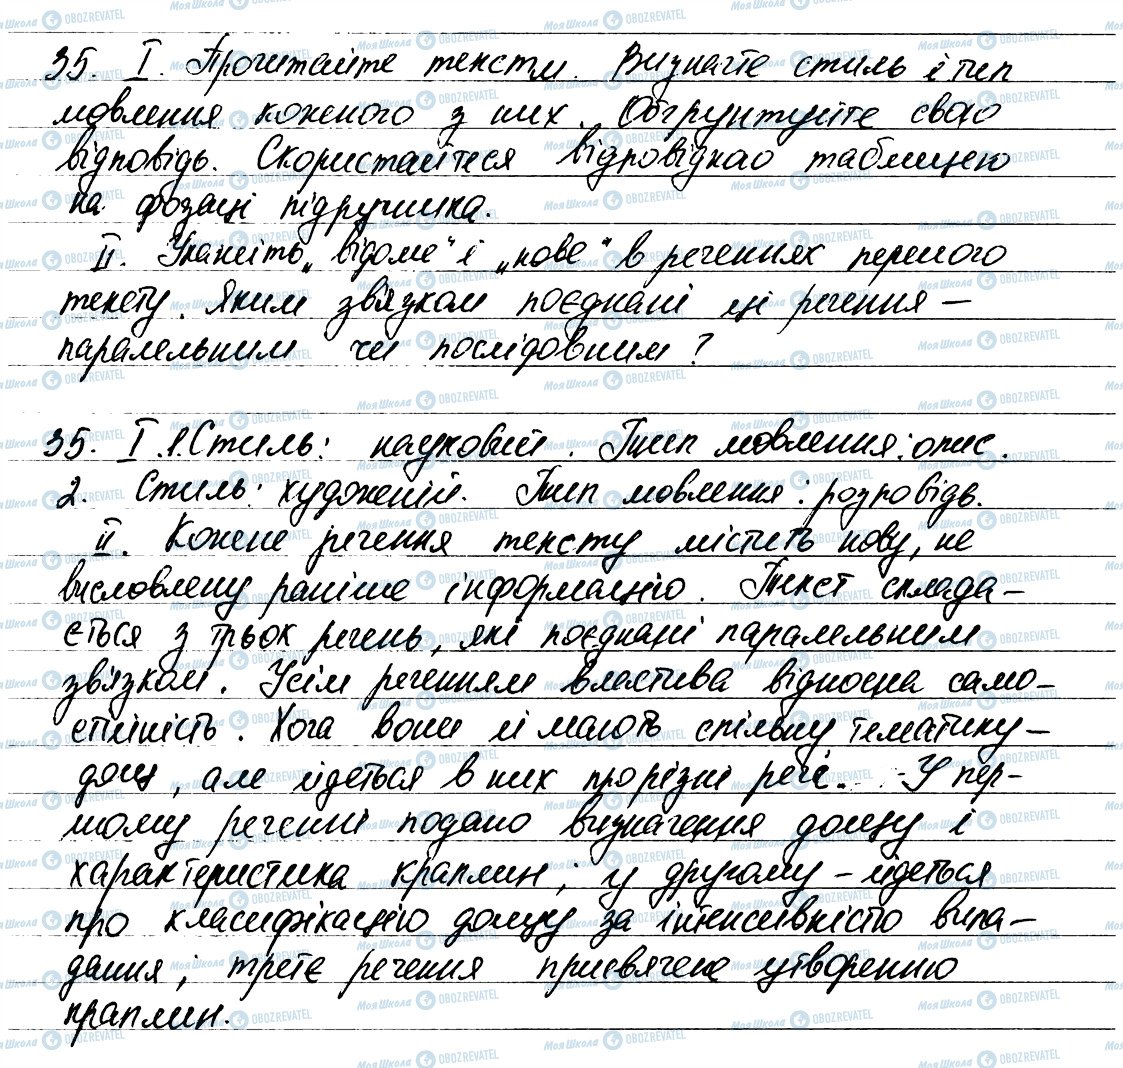 35. I. Прочитайте тексти. Визначте стиль і тип
мовлення кожного з них. Обґрунтуйте свою
відповідь. Скористайтеся відповідною таблицею
на форзаці підручника.
II. Укажіть „відоме" і „нове" в реченнях першого
тексту. Яким зв'язком поєднані ці речення –
паралельним чи послідовним?
35. I. 1. Стиль: науковий. Тип мовлення: опис.
2. Стиль: художній. Тип мовлення: розповідь.
II. Кожне речення тексту містить нову, не
висловлену раніше інформацію. Текст склада-
ється з трьох речень, які поєднані паралельним
зв'язком. Усім реченням властива відносна само-
стійність. Хоча вони й мають спільну тематику –
дощ, але йдеться в них про різні речі. У пер-
шому реченні подано визначення дощу і
характеристика краплин; у другому – йдеться
про класифікацію дощу за інтенсивністю випа-
дання; третє речення присвячене утворенню
краплин.